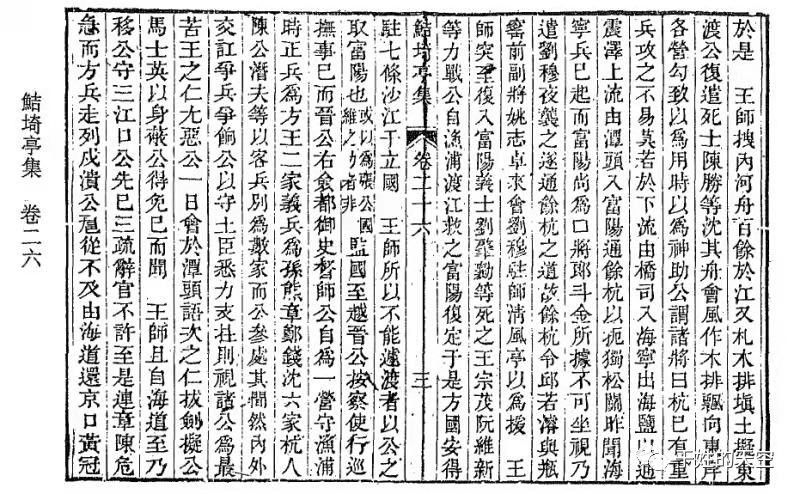 於是　王師拽內河舟百餘於江又札木排塡土擬東
渡公復遣死士陳勝等沈其舟會風作木排飄向東岸
各營勾致以爲用時以爲神助公謂諸將曰杭巳有重
兵攻之不易莫若於下流由橋司入海寧出海鹽以通
震澤上流由潭頭入富陽通餘杭以扼獨松關昨聞海
寧兵巳起而富陽尚爲口將郎斗金所據不可坐視乃
遣劉穆夜襲之遂通餘杭之道故餘杭令邱若濬與瓶
窰前副將姚志卓來會劉穆駐師清風亭以爲援　王
師突至復入富陽義士劉肇勷等死之王宗茂阮維新
等力戰公自漁浦渡江救之富陽復定于是方國安得
鮚埼亭集　卷二十六　三
駐七條沙江干立國　王師所以不能遽渡者以公之
取富陽也或以爲張公國維之功者非監國至越晉公按察使行巡
撫事巳而晉公右僉都御史督師公自爲一營守漁浦
時正兵爲方王二家義兵爲孫熊章鄭錢沈六家杭人
陳公潛夫等以客兵別爲數家而公參處其間然內外
交訌爭兵爭餉公以守土臣悉力支拄則視諸公爲最
苦王之仁尤惡公一日會於潭頭語次之仁拔劍擬公
馬士英以身蔽公得免巳而聞　王師且自海道至乃
移公守三江口公先巳三疏辭官不許至是連章陳危
急而方兵走列戍潰公扈從不及由海道還京口黃冠
鮚埼亭集　卷二六
的天空